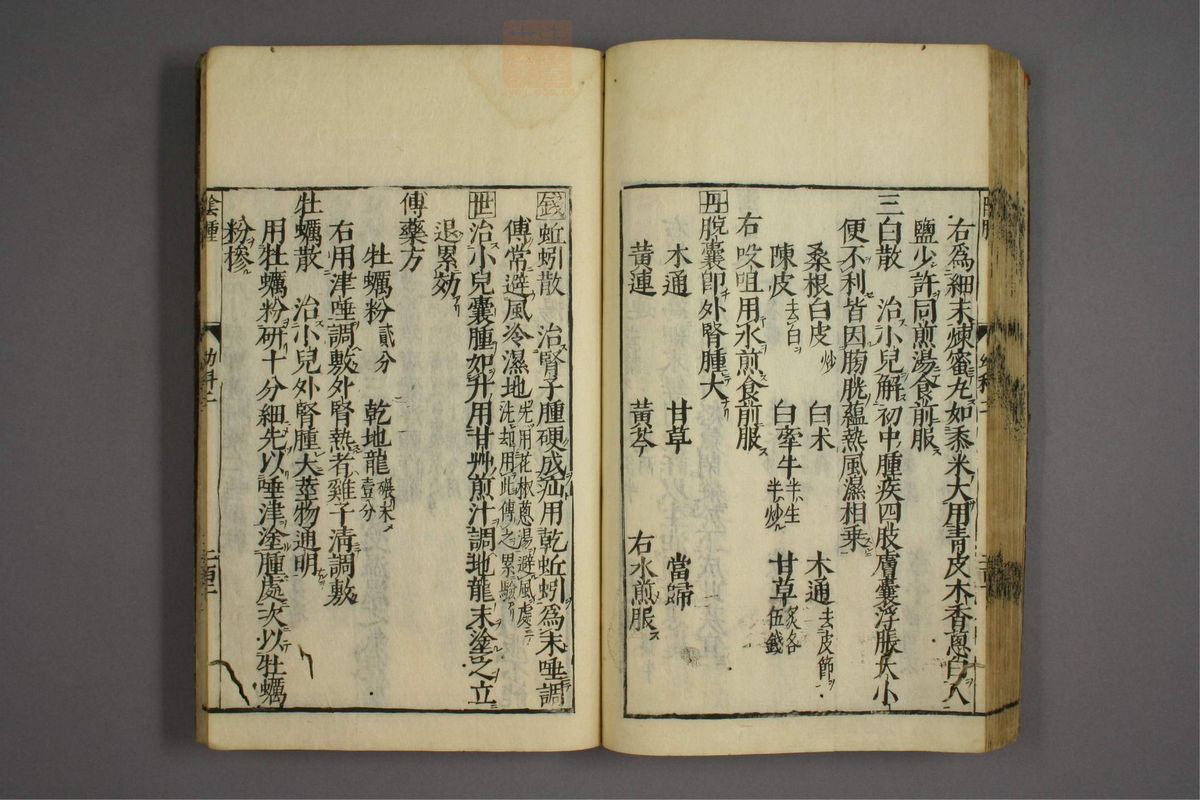 右爲細末煉蜜丸如黍米大用青皮木香蔥白入
鹽少許同煎湯食前服
三白散　治小兒解初中腫疾四肢膚囊浮脹大小
便不利皆因膀胱蘊熱風濕相乗
桑根白皮炒　白术　木通去皮節
陳皮去白　白牽牛半生半炒　甘草炙各伍錢
右㕮咀用水煎食前服
丹脫囊即外腎腫大
木通　甘草　當歸
黃連　黃芩　右水煎服
錢蚯蚓散　治腎子腫硬成疝用乾蚯蚓爲末唾調
傅常避風冷濕地先用花椒蔥湯避風處洗却用此傅之累驗
世治小兒囊腫如升用甘艸煎汁調地龍末塗之立
退累効
傅藥方
牡蠣粉貳分　乾地龍碾末壹分
右用津唾調敷外腎熱者雞子清調敷
牡蠣散　治小兒外腎腫大莖物通明
用牡蠣粉研十分細先以唾津塗腫處次以牡蠣
粉摻
陰腫　幼科二